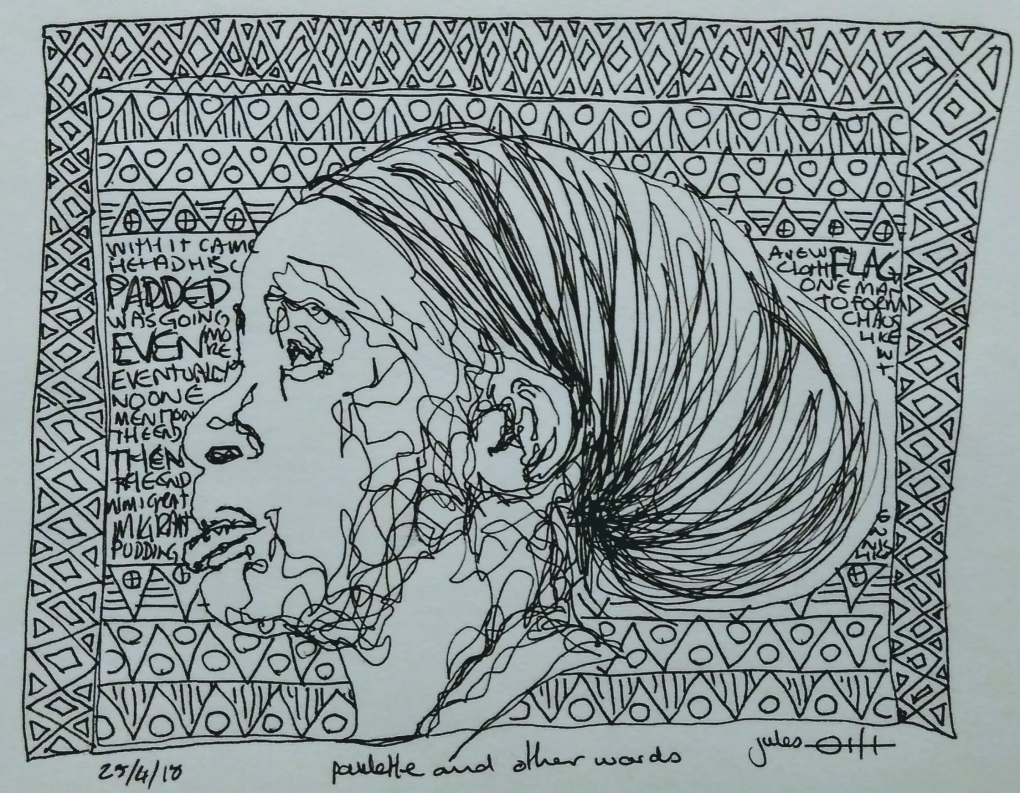 WITH IT CAME
HE HAD HIS
PADDED
WAS GOING
EVEN MORE
EVENTUALLY
NO ONE
MENTION
THE END
THEN
PUDDING
A NEW FLAG
CLOTH
ONE MAN
TO FORM
CHAOS
LIKE
25/4/18
paulette and other words
jules